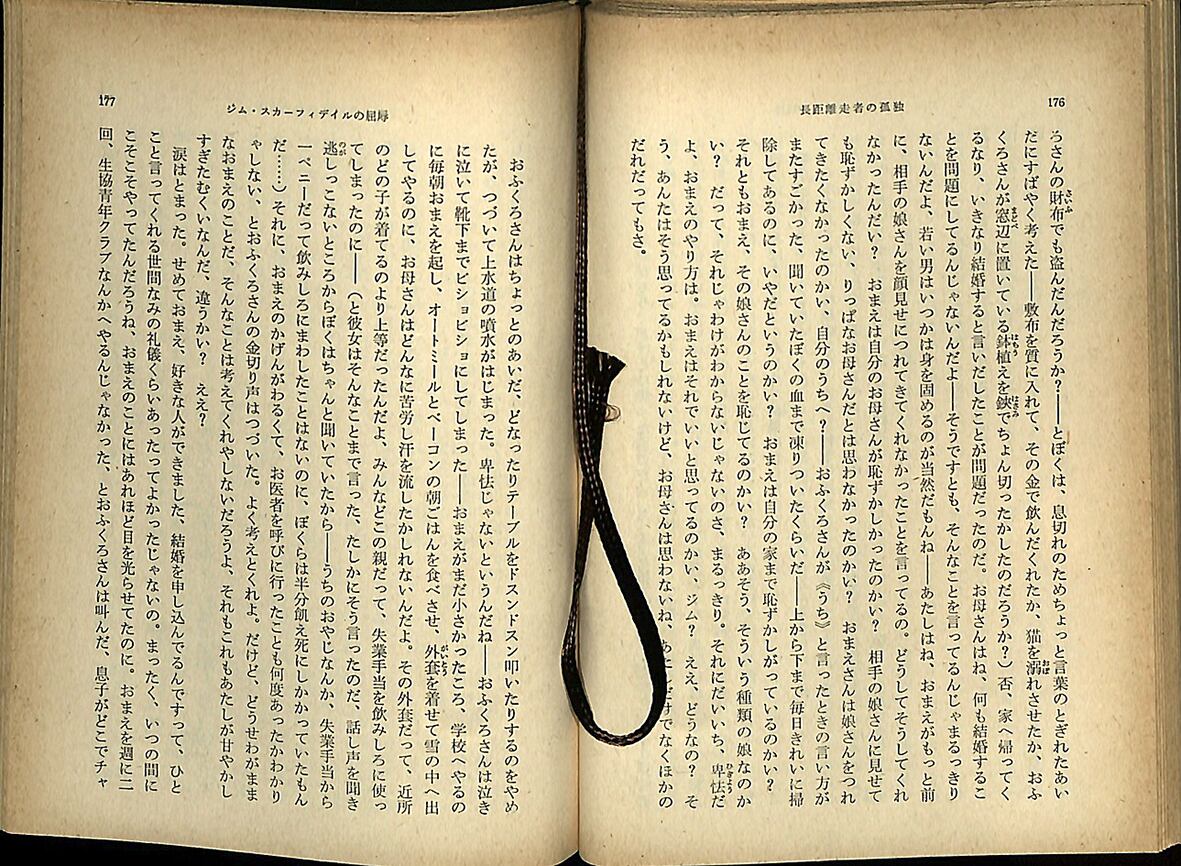 176
長距離走者の孤独
ろさんの財布でも盗んだんだろうか?――とぼくは、息切れのためちょっと言葉のとぎれたあい
だにすばやく考えた――敷布を質に入れて、その金で飲んだくれたか、猫を溺れさせたか、おふ
くろさんが窓辺に置いている鉢植えを鋏でちょん切ったかしたのだろうか?)否、家へ帰ってく
るなり、いきなり結婚すると言いだしたことが問題だったのだ。お母さんはね、何も結婚するこ
とを問題にしてるんじゃないんだよ――そうですとも、そんなことを言ってるんじゃまるっきり
ないんだよ、若い男はいつかは身を固めるのが当然だもんね――あたしはね、おまえがもっと前
に、相手の娘さんを顔見せにつれてきてくれなかったことを言ってるの。どうしてそうしてくれ
なかったんだい? おまえは自分のお母さんが恥ずかしかったのかい? 相手の娘さんに見せて
も恥ずかしくない、りっぱなお母さんだとは思わなかったのかい? おまえさんは娘さんをつれ
てきたくなかったのかい、自分のうちへ?――おふくろさんが《うち》と言ったときの言い方が
またすごかった、聞いていたぼくの血まで凍りついたくらいだ――上から下まで毎日きれいに掃
除してあるのに、いやだというのかい? おまえは自分の家まで恥ずかしがっているのかい?
それともおまえ、その娘さんのことを恥じてるのかい? ああそう、そういう種類の娘なのか
い? だって、それじゃわけがわからないじゃないのさ、まるっきり。それにだいいち、卑怯だ
よ、おまえのやり方は。おまえはそれでいいと思ってるのかい、ジム? ええ、どうなの? そ
う、あんたはそう思ってるかもしれないけど、お母さんは思わないね、でなくほかの
だれだってもさ。
ジム・スカーフィデイルの屈辱
177
おふくろさんはちょっとのあいだ、どなったりテーブルをドスンドスン叩いたりするのをやめ
たが、つづいて上水道の噴水がはじまった。卑怯じゃないというんだね――おふくろさんは泣き
に泣いて靴下までビショビショにしてしまった――おまえがまだ小さかったころ、学校へやるの
に毎朝おまえを起し、オートミールとベーコンの朝ごはんを食べさせ、外套を着せて雪の中へ出
してやるのに、お母さんはどんなに苦労し汗を流したかしれないんだよ。その外套だって、近所
のどの子が着てるのより上等だったんだよ、みんなどこの親だって、失業手当を飲みしろに使っ
てしまったのに――(と彼女はそんなことまで言った、たしかにそう言ったのだ、話し声を聞き
逃しっこないところからぼくはちゃんと聞いていたから――うちのおやじなんか、失業手当から
一ペニーだって飲みしろにまわしたことはないのに、ぼくらは半分飢え死にしかかっていたもん
だ……)それに、おまえのかげんがわるくて、お医者を呼びに行ったことも何度あったかわかり
ゃしない、とおふくろさんの金切り声はつづいた。よく考えとくれよ。だけど、どうせわがまま
なおまえのことだ、そんなことは考えてくれやしないだろうよ、それもこれもあたしが甘やかし
すぎたむくいなんだ、違うかい? ええ?
涙はとまった。せめておまえ、好きな人ができました、結婚を申し込んでるんですって、ひと
こと言ってくれる世間なみの礼儀くらいあったってよかったじゃないの。まったく、いつの間に
こそこそやってたんだろうね、おまえのことにはあれほど目を光らせてたのに。おまえを週に二
回、生協青年クラブなんかへやるんじゃなかった、とおふくろさんは叫んだ、息子がどこでチャ